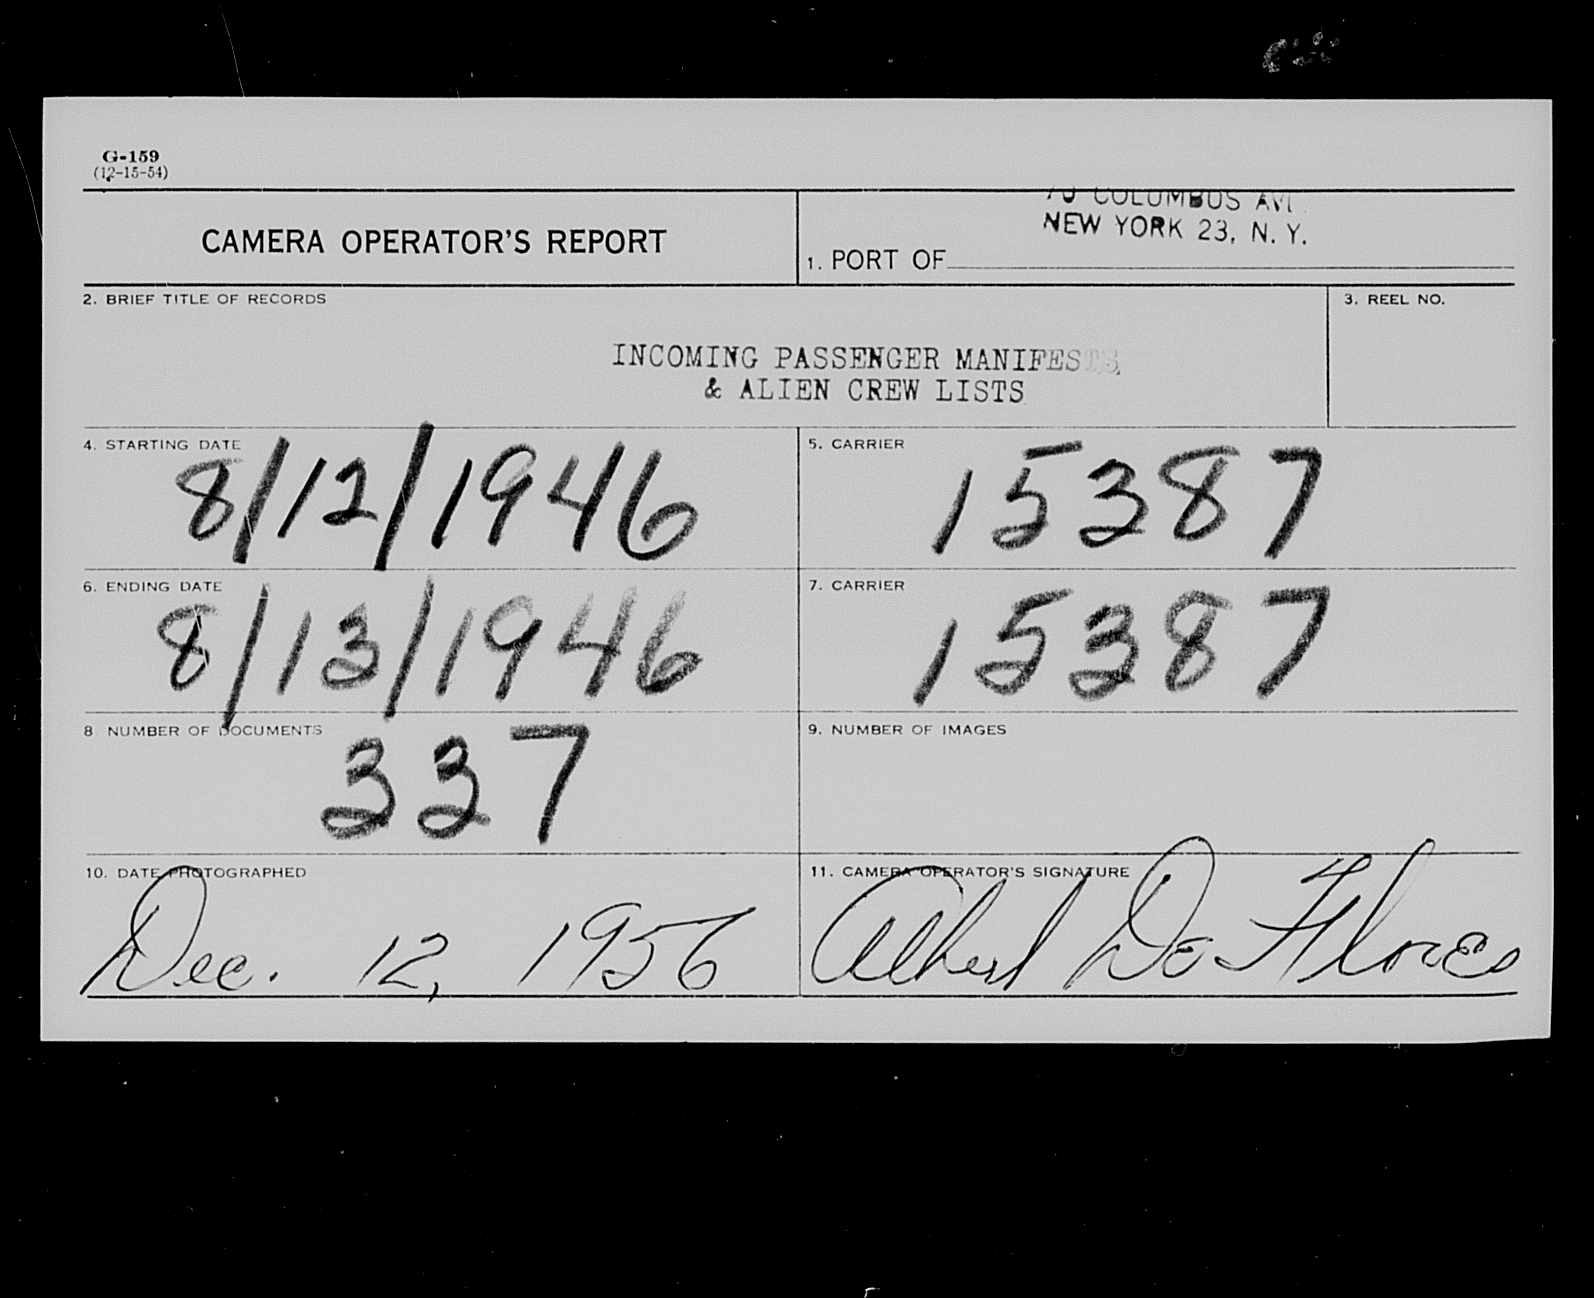 G-159
(12-15-54)
CAMERA OPERATOR'S REPORT
70 COLUMBUS AVE.
NEW YORK 23, N. Y.
1. PORT OF
2. BRIEF TITLE OF RECORDS
3. REEL NO.
INCOMING PASSENGER MANIFESTS
& ALIEN CREW LISTS
4. STARTING DATE
8/12/1946
5. CARRIER
15387
6. ENDING DATE
8/13/1946
7. CARRIER
15387
8 NUMBER OF DOCUMENTS
337
9. NUMBER OF IMAGES
10. DATE PHOTOGRAPHED
Dec. 12, 1956
11. CAMERA OPERATOR'S SIGNATURE
Albert De Flores